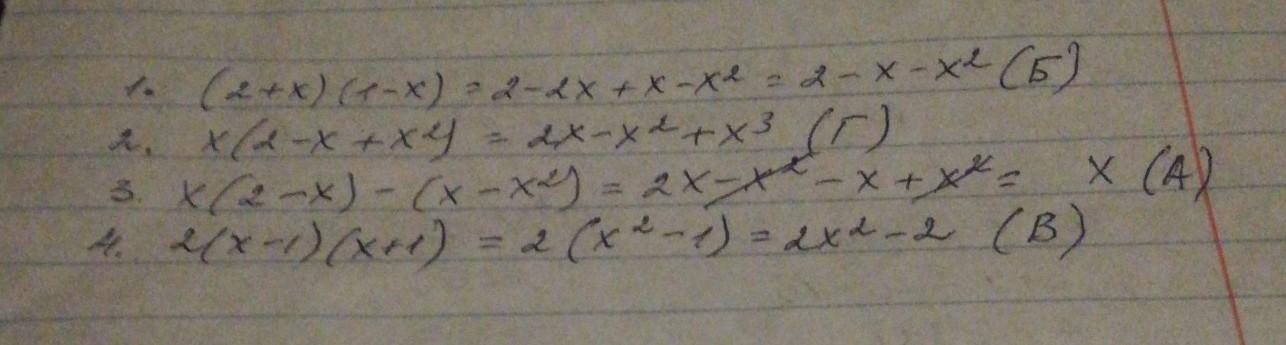 1. (2+x)(1-x) = 2-2x+x-x² = 2-x-x² (Б)
2. x(2-x+x²) = 2x-x²+x³ (Г)
3. x(2-x)-(x-x²) = 2x-x²-x+x² = x (А)
4. 2(x-1)(x+1) = 2(x²-1) = 2x²-2 (В)